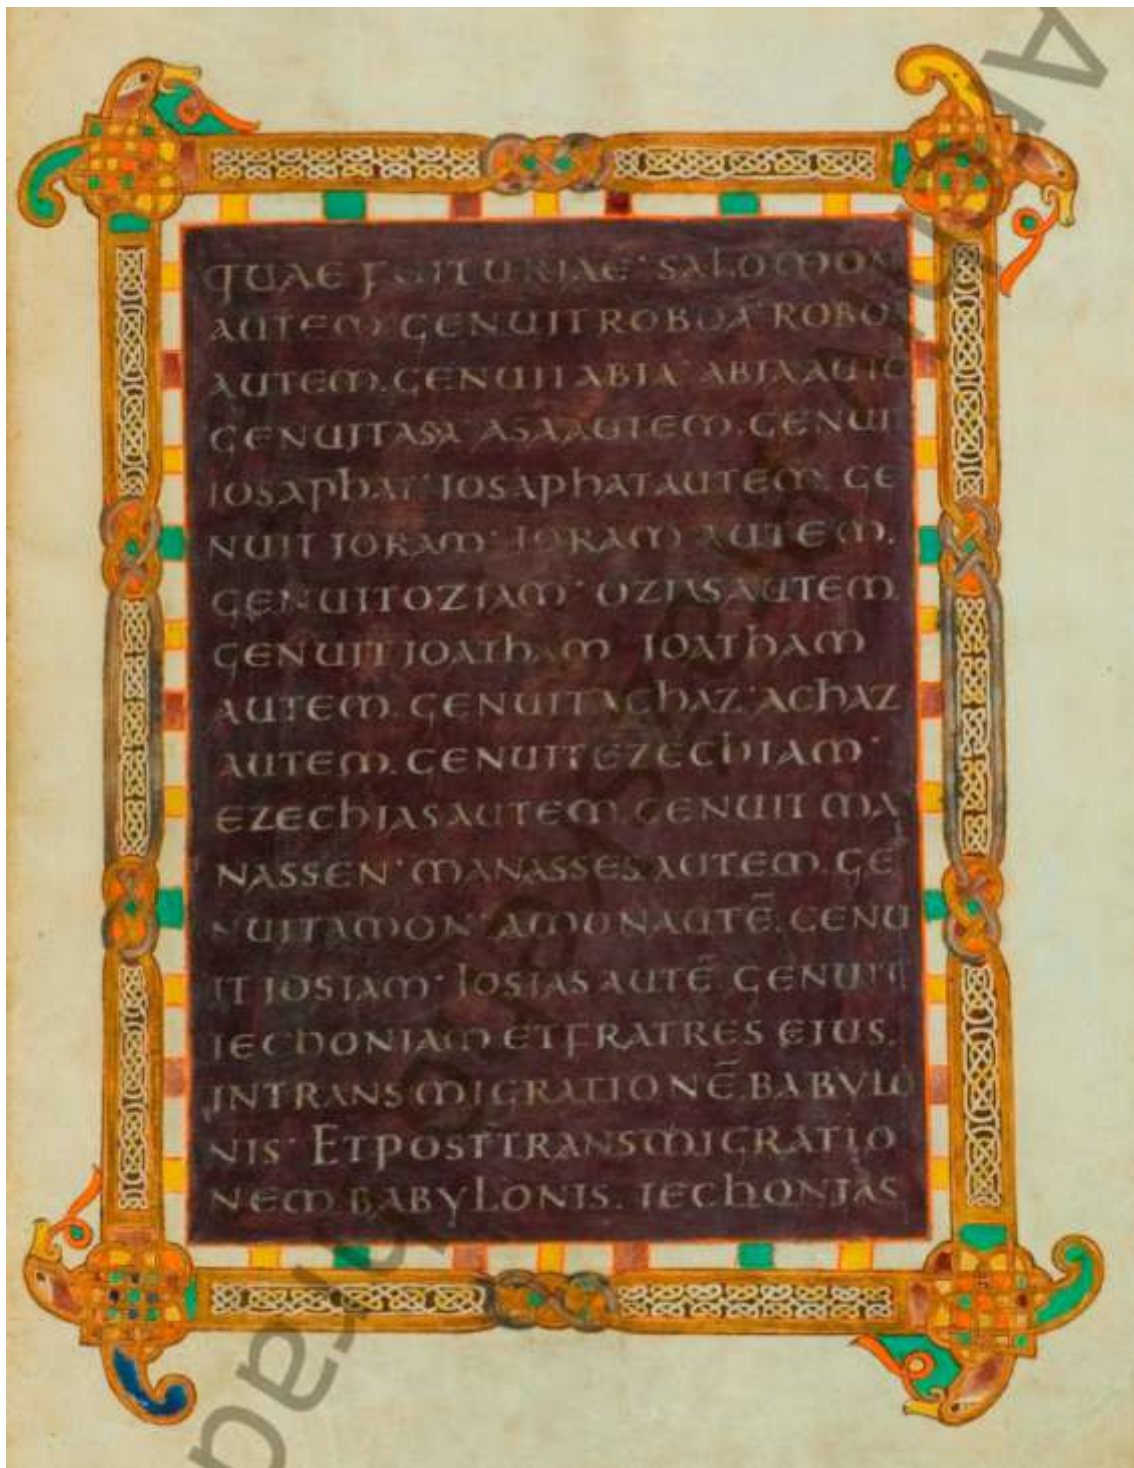 QUAE FUIT URIAE· SALOMON
AUTEM. GENUIT ROBOĀ· ROBO
AUTEM. GENUIT ABIA· ABIA AUTE
GENUIT ASA· ASA AUTEM. GENUIT
IOSAPHAT· IOSAPHAT AUTEM. GE
NUIT IORAM· IORAM AUTEM.
GENUIT OZIAM· OZIAS AUTEM
GENUIT IOATHAM IOATHAM
AUTEM. GENUIT ACHAZ· ACHAZ
AUTEM. GENUIT EZECHIAM·
EZECHIAS AUTEM. GENUIT MA
NASSEN· MANASSES AUTEM. GE
NUIT AMON· AMON AUTĒ. GENU
IT IOSIAM· IOSIAS AUTĒ. GENUIT
IECHONIAM ET FRATRES EIUS.
IN TRANSMIGRATIONĒ BABYLO
NIS· ET POST TRANSMIGRATIO
NEM. BABYLONIS. IECHONIAS